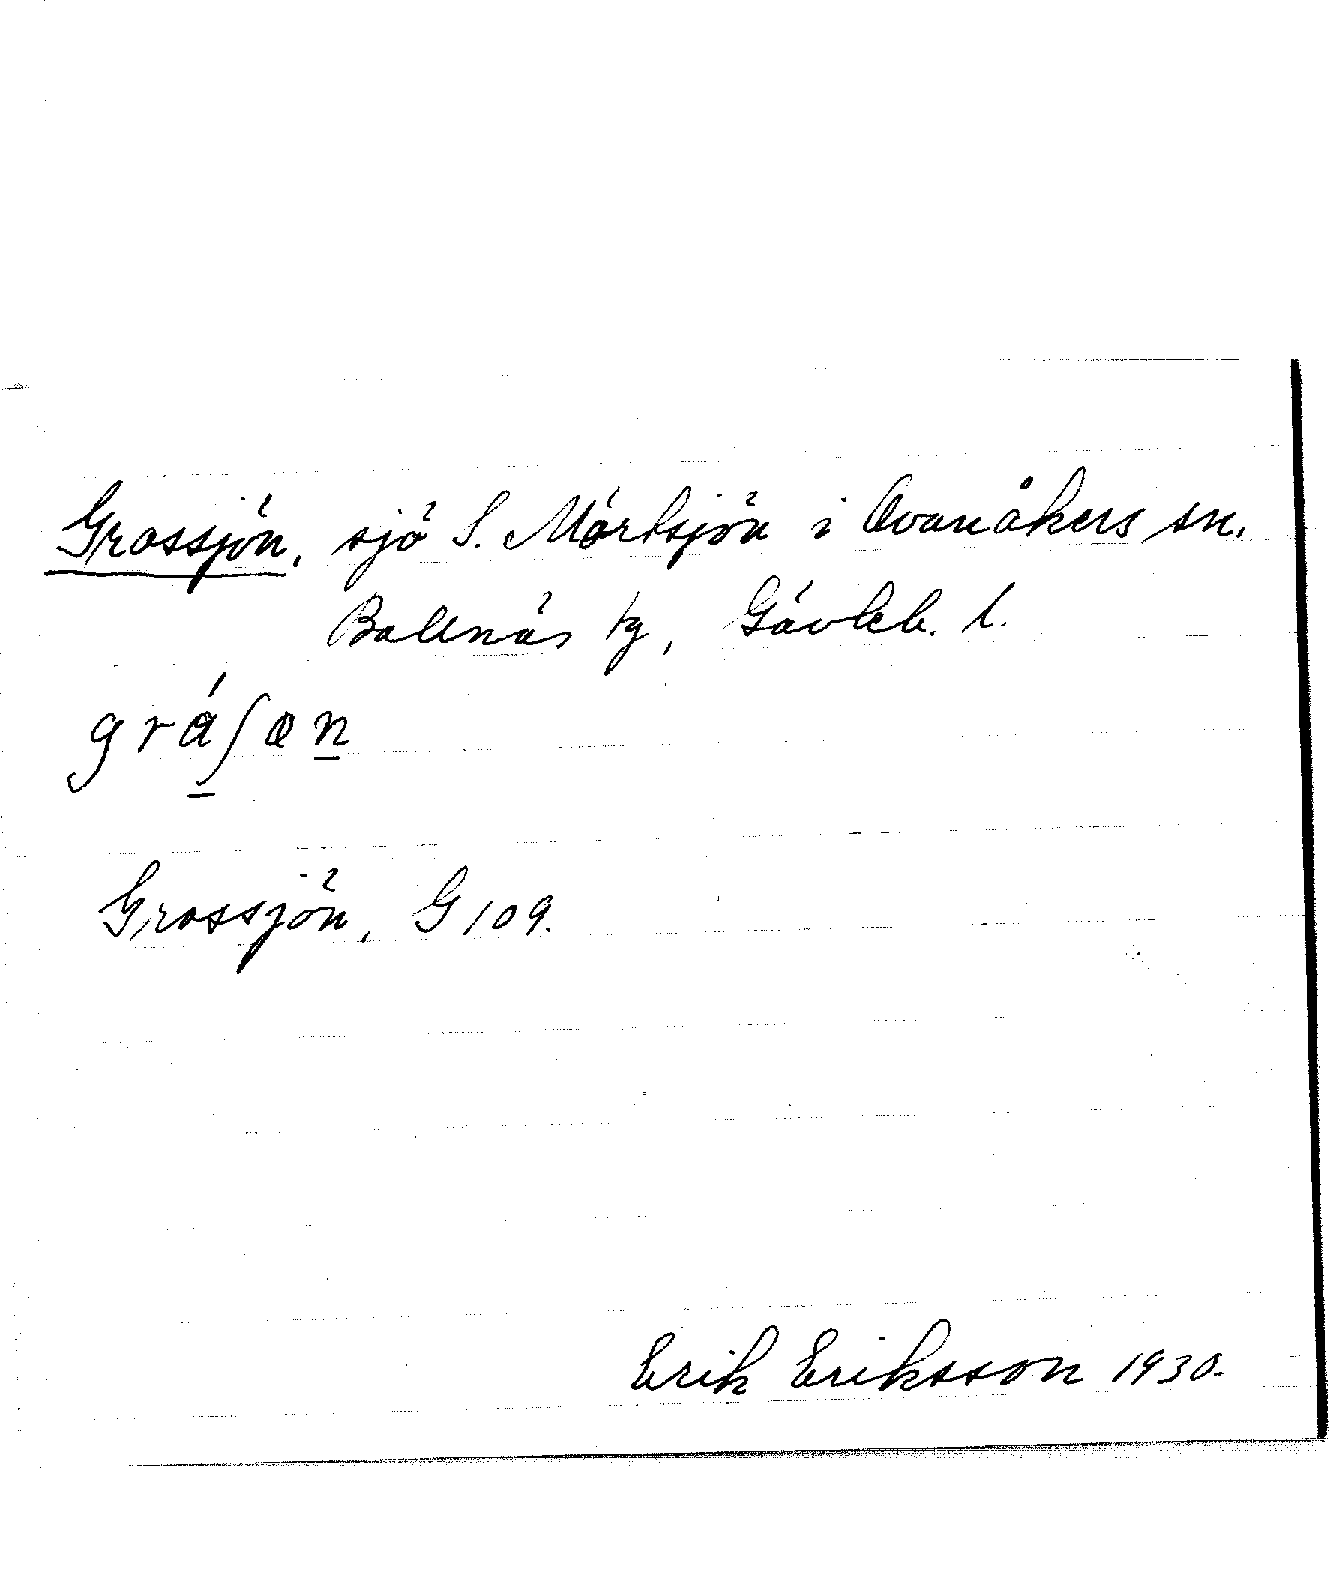 Grossjön, sjö S. Mörtsjön i Ovanåkers sn.
Bollnäs tg, Gävleb. l.
gráʃøn
Grossjön, G 109.
Erik Eriksson 1930.